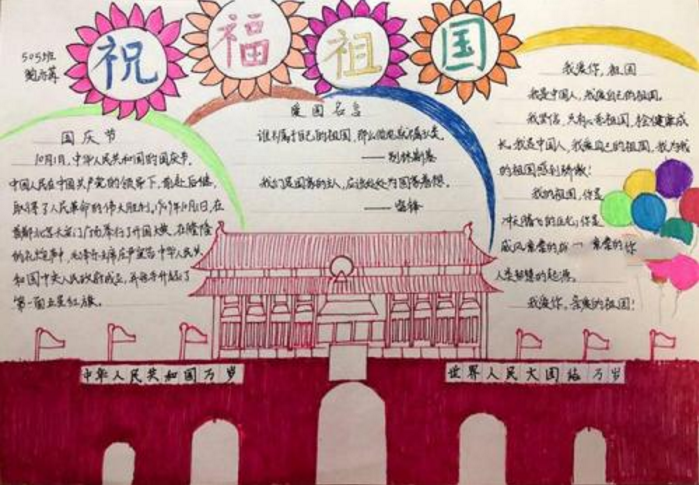 祝福祖国
505班
国庆节
10月1日，中华人民共和国的国庆节。
中国人民在中国共产党的领导下，前赴后继，
取得了人民革命的伟大胜利。1949年10月1日，在
首都北京天安门广场举行了开国大典，在隆隆
的礼炮声中，毛泽东主席庄严宣告中华人民共
和国中央人民政府成立，并亲手升起了
第一面五星红旗。
爱国名言
谁不属于自己的祖国，那么他也就不属于人类。
——别林斯基
我们是国家的主人，应该处处为国家着想。
——雷锋
我爱你，祖国
我是中国人，我爱自己的祖国。
我坚信，只有心系祖国，才会健康成
长。我是中国人，我爱自己的祖国，我为我
的祖国感到骄傲！
我的祖国，你是
冲天腾飞的巨龙；你是
威风凛凛的
你
人类智慧的起源。
我爱你，亲爱的祖国！
中华人民共和国万岁
世界人民大团结万岁